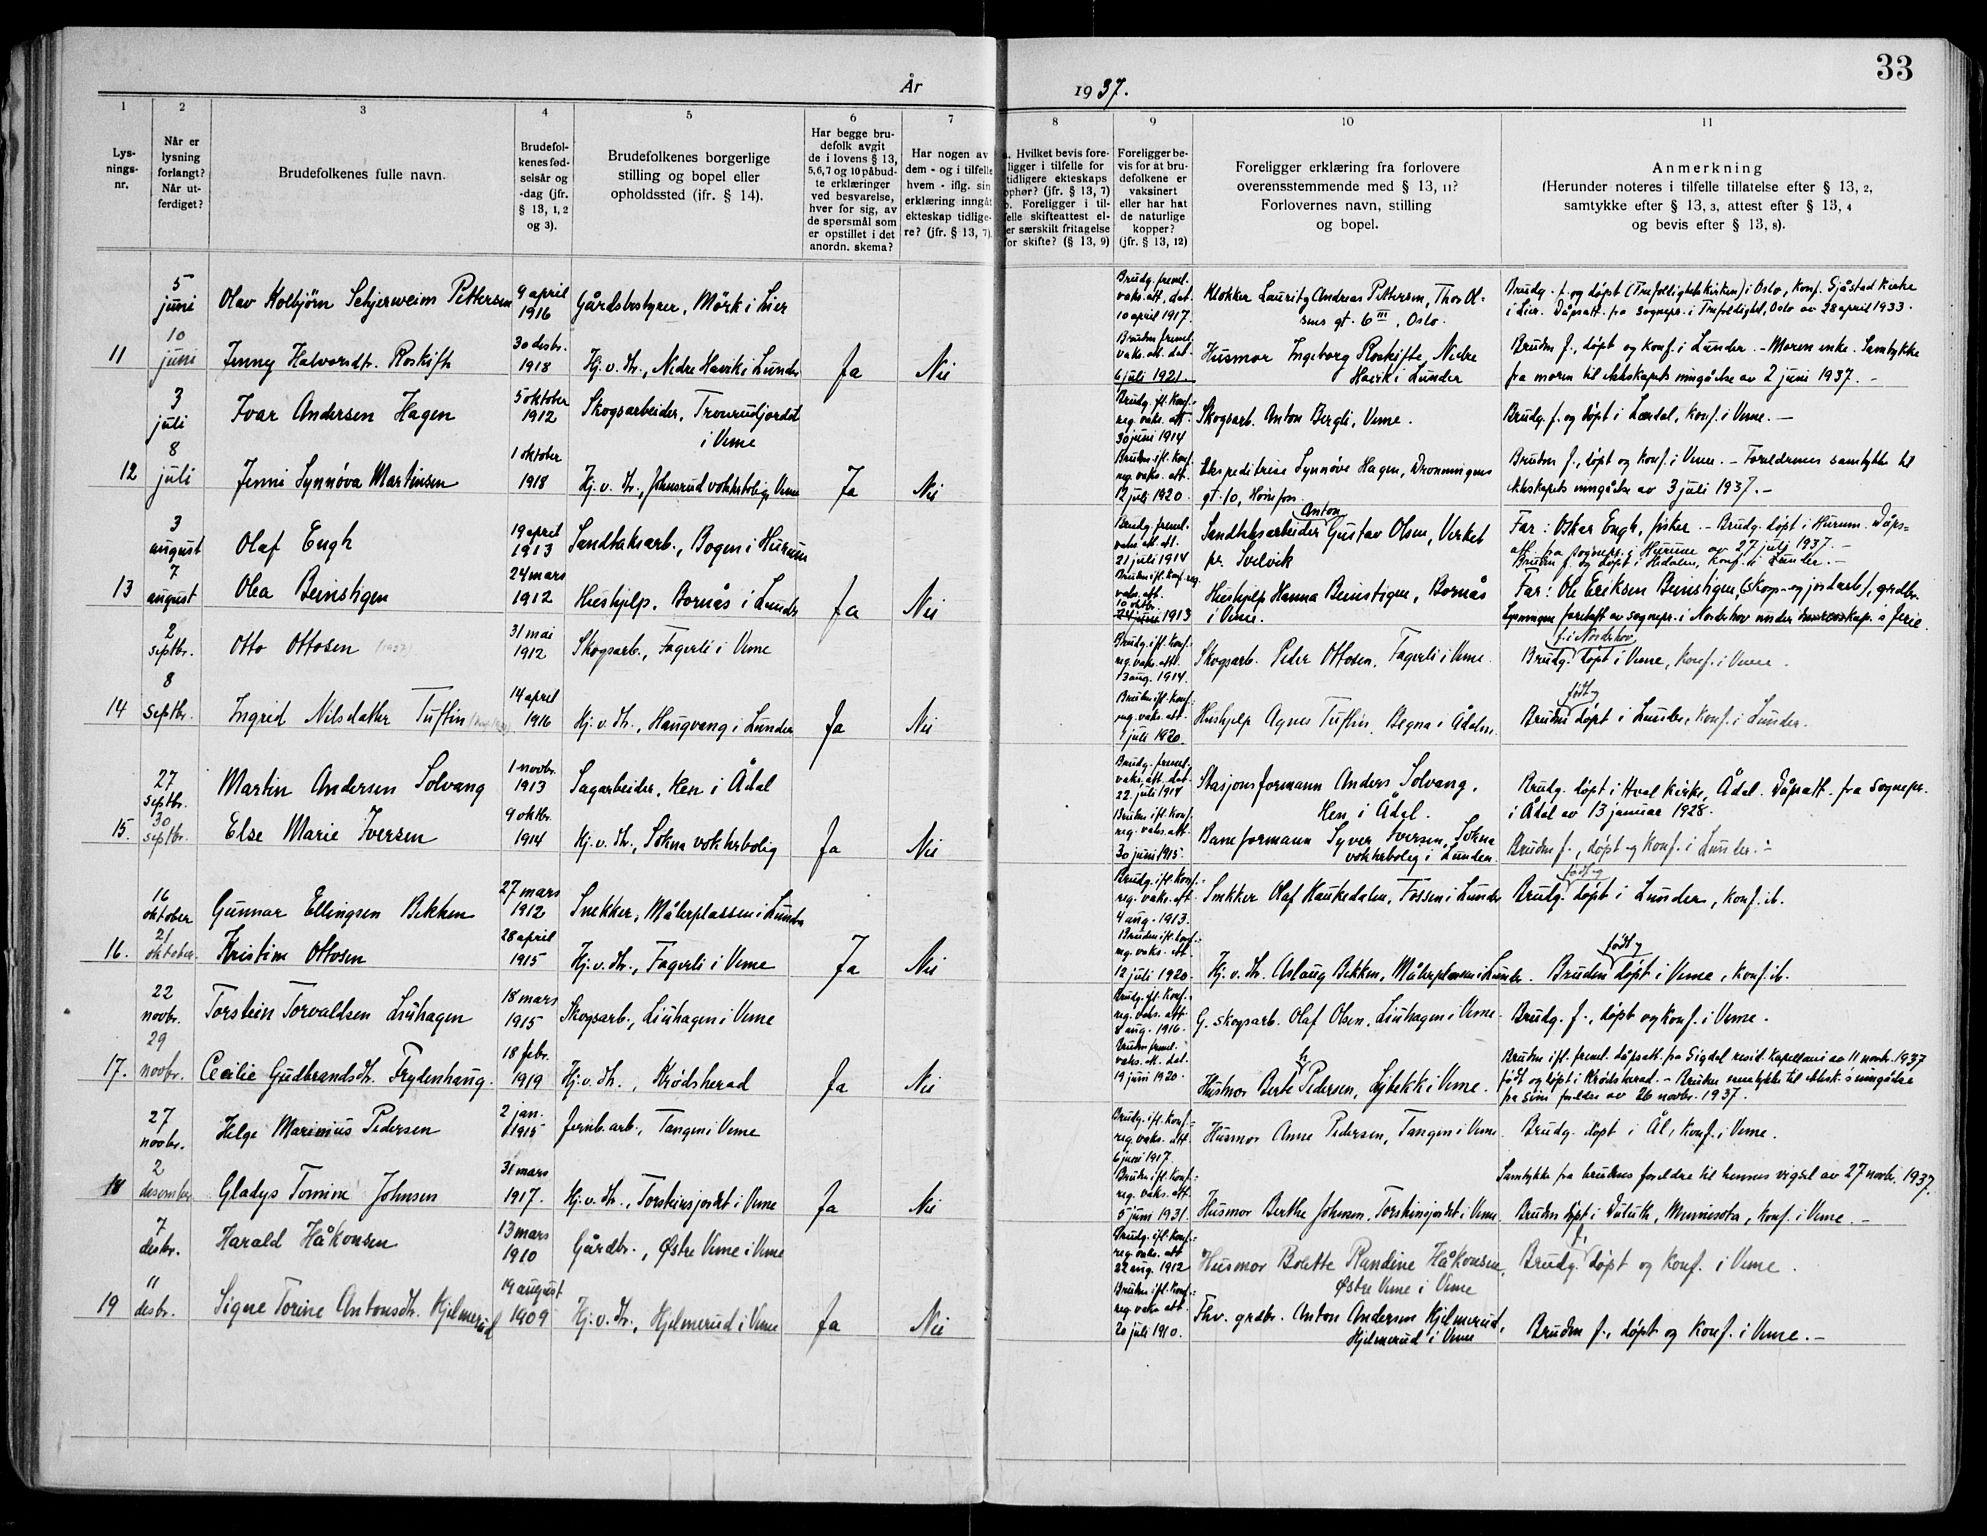 33
År 1937.
1
2
3
4
5
6
7
8
9
10
11
Lys-
nings-
nr.
Når er
lysning
forlangt?
Når ut-
ferdiget?
Brudefolkenes fulle navn.
Brudefol-
kenes fød-
selsår og
-dag (jfr.
§ 13, 1, 2
og 3).
Brudefolkenes borgerlige
stilling og bopel eller
opholdssted (jfr. § 14).
Har begge bru-
defolk avgit
de i lovens § 13,
5, 6, 7 og 10 påbud-
te erklæringer
ved besvarelse,
hver for sig, av
de spørsmål som
er opstillet i det
anordn. skema?
Har nogen av
dem - og i tilfelle
hvem - iflg. sin
erklæring inngåt
ekteskap tidlige-
re? (jfr. § 13, 7).
a. Hvilket bevis fore-
ligger i tilfelle for
tidligere ekteskaps
ophør? (jfr. § 13, 7)
b. Foreligger i til-
felle skifteattest el-
ler særskilt fritagelse
for skifte? (§ 13, 9)
Foreligger be-
vis for at bru-
defolkene er
vaksinert
eller har hat
de naturlige
kopper?
(jfr. § 13, 12)
Foreligger erklæring fra forlovere
overensstemmende med § 13, 11?
Forlovernes navn, stilling
og bopel.
Anmerkning
(Herunder noteres i tilfelle tillatelse efter § 13, 2,
samtykke efter § 13, 3, attest efter § 13, 4
og bevis efter § 13, 8).
5 juni Olav Kolbjørn Schjerweim Pettersen 9 april 1916 Gårdsbestyrer, Mörk i Lier
Brudg. freml. vaks.att. dat. 10 april 1917. Klokker Lauritz Andreas Pettersen, Thor Ol-
sens gt. 6 III, Oslo.
Brudg. f. og døpt (Trefoldighetskirken) i Oslo, konf. Sjåstad kirke
i Lier. Dåpsatt. fra sognepr. i Trefoldighet, Oslo av 28 april 1933.
11 10 juni Jenny Halvorsdtr. Roskift 30 desbr. 1918 Hj.v. dtr., Nedre Havik i Lunder Ja Nei
Bruden freml. vaks. att. dat. 6 juli 1921. Husmor Ingeborg Roskifte, Nedre
Havik i Lunder
Bruden f., døpt og konf. i Lunder. - Moren enke. Samtykke
fra moren til ekteskapets inngåelse av 2 juni 1937. -
3 juli Ivar Andersen Hagen 5 oktober 1912 Skogsarbeider, Tronrudjordet
i Veme
Brudg. ifl. konf. reg. vaks. att. 30 juni 1914 Skogsarb. Anton Bergli, Veme.
Brudg. f. og døpt i Lærdal, konf. i Veme. -
12 8 juli Jenni Synnøva Martinsen 1 oktober 1918 Hj.v. dtr., Johnsrud vokterbolig, Veme Ja Nei
Bruden ifl. konf. reg. vaks. att. 12 juli 1920. Ekspeditrise Synnøve Hagen, Dronningens
gt. 10, Hønefoss.
Bruden f., døpt og konf. i Veme. - Foreldrenes samtykke til
ekteskapets inngåelse av 3 juli 1937. -
3 august Olaf Engh 19 april 1913 Sandtaksarb., Bogen i Hurum
Brudg. freml. vaks. att. 21 juli 1914 Sandtaksarbeider Anton Gustav Olsen, Verket
pr. Svelvik
Far: Oskar Engh, fisker. - Brudg. døpt i Hurum. Dåps-
att. fra sognepr. i Hurum av 27 juli 1937. -
Bruden f. og døpt i Hedalen, konf. i Lunder. -
13 7 august Olea Beinstigen 24 mars 1912 Hushjelp, Bornås i Lunder Ja Nei
Bruden ifl. konf. reg. vaks. att. 10 oktbr. 1913 Hushjelp Hanna Beinstigen, Bornås
i Veme.
Far: Ole Eriksen Beinstigen, (skog- og jordarb.), grdbr.
Lysningen foretatt av sognepr. i Norderhov under ferie.
2 septbr. Otto Ottosen (1937) 31 mai 1912 Skogsarb., Fagerli i Veme
Brudg. ifl. konf. reg. vaks. att. 13 aug. 1914. Skogsarb. Peder Ottosen, Fagerli i Veme.
Brudg. f. i Norderhov døpt i Veme, konf. i Veme.
14 8 septbr. Ingrid Nilsdatter Tuftin 14 april 1916 Hj.v. dtr., Haugvang i Lunder Ja Nei
Bruden ifl. konf. reg. vaks. att. 1 juli 1920. Hushjelp Agnes Tuftin, Begna i Ådalen.
Bruden født og døpt i Lunder, konf. i Lunder.
27 septbr. Martin Andersen Solvang 1 novbr. 1913 Sagarbeider, Hen i Ådal
Brudg. freml. vaks. att. dat. 22 juli 1914 Stasjonsformann Anders Solvang,
Hen i Ådal.
Brudg. døpt i Hval kirke, Ådal. Dåpsatt. fra sognepr.
i Ådal av 13 januar 1928.
15. 30 septbr. Else Marie Iversen 9 oktbr. 1914 Hj.v. dtr., Sokna vokterbolig Ja Nei
Bruden ifl. konf. reg. vaks. att. 30 juni 1915. Baneformann Syver Iversen, Sokna
vokterbolig i Lunder.
Bruden f., døpt og konf. i Lunder. -
16 oktober Gunnar Ellingsen Bekken 27 mars 1912 Snekker, Målerplassen i Lunder
Brudg. ifl. konf. reg. vaks. att. 4 aug. 1913. Snekker Olaf Haukedalen, Fossen i Lunder
Brudg. født og døpt i Lunder, konf. ib.
16. 21 oktober. Kristine Ottosen 28 april 1915 Hj.v. dtr., Fagerli i Veme Ja Nei
Bruden ifl. konf. reg. vaks. att. 12 juli 1920. Hj.v. dtr. Aslaug Bekken, Målerplassen i Lunder.
Bruden født og døpt i Veme, konf. ib.
22 novbr. Torstein Torvaldsen Liuhagen 18 mars 1915 Skogsarb., Liuhagen i Veme
Brudg. ifl. konf. reg. vaks. att. aug. 1916. G. skogsarb. Olaf Olsen, Liuhagen i Veme.
Brudg. f., døpt og konf. i Veme.
17. 29 novbr. Cecilie Gudbrandsdtr. Frydenhaug. 18 febr. 1919 Hj.v. dtr., Krødsherad Ja Nei
Bruden freml. vaks. att. dat. 19 juni 1920. Husmor Berthe Pedersen, Lybekk i Veme.
Bruden ifl. freml. dåpsatt. fra Sigdal resid. kapellani av 11 novbr. 1937
født og døpt i Krødsherad. - Bruden samtykke til ektesk.'s inngåelse
fra sine foreldre av 26 novbr. 1937.
27 novbr. Helge Marinius Pedersen 2 jan. 1915 Jernb.arb., Tangen i Veme
Brudg. ifl. konf. reg. vaks. att. 6 juni 1917. Husmor Anne Pedersen, Tangen i Veme.
Brudg. døpt i Ål, konf. i Veme.
Samtykke fra brudens foreldre til hennes vigsel av 27 novbr. 1937.
18 2 desember Gladys Tomine Johnsen 31 mars 1917. Hj.v. dtr., Torsteinsjordet i Veme Ja Nei
Bruden ifl. konf. reg. vaks. att. 5 juni 1931. Husmor Berthe Johnsen, Torsteinsjordet i Veme
Bruden døpt i Duluth, Minnesota, konf. i Veme. -
7 desbr. Harald Håkonsen 13 mars 1910 Gårdbr., Østre Veme i Veme
Brudg. ifl. konf. reg. vaks. att. 22 aug. 1912 Husmor Bolette Randine Håkonsen,
Østre Veme i Veme
Brudg. f., døpt og konf. i Veme.
19 11 desbr. Signe Torine Antonsdtr. Hjelmerud 19 august 1909 Hj.v. dtr., Hjelmerud i Veme Ja Nei
Bruden ifl. konf. reg. vaks. att. 20 juli 1910. Fhv. grdbr. Anton Andersen Hjelmerud,
Hjelmerud i Veme
Bruden f., døpt og konf. i Veme. -